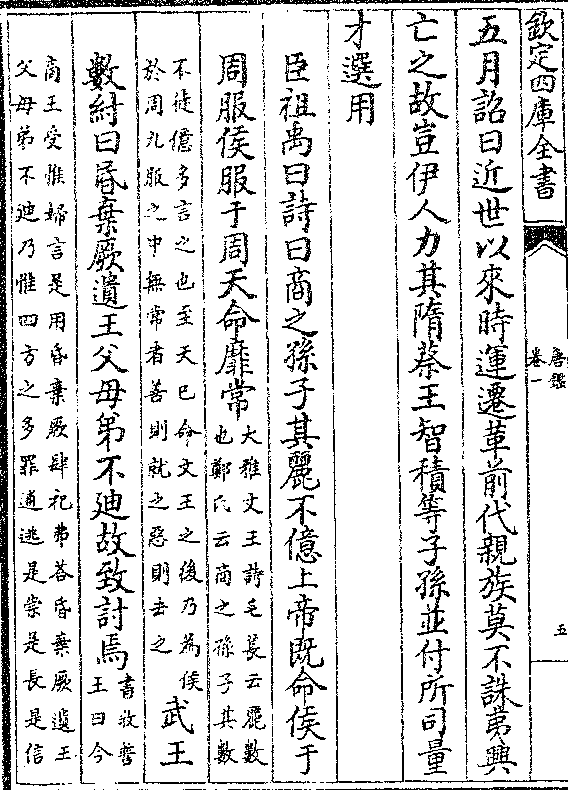 欽定四庫全書
唐鑑
卷一
五
五月詔曰近世以來時運遷革前代親族莫不誅夷興
亡之故豈伊人力其隋蔡王智積等子孫並付所司量
才選用
臣祖禹曰詩曰商之孫子其麗不億上帝既命侯于
周服侯服于周天命靡常
大雅文王詩毛萇云麗數
也鄭氏云商之孫子其數
不徒億多言之也至天已命文王之後乃為侯
於周九服之中無常者善則就之惡則去之
武王
數紂曰昏棄厥遺王父母弟不迪故致討焉
書牧誓
王曰今
商王受惟婦言是用昏棄厥肆祀弗答昏棄厥遺王
父母弟不迪乃惟四方之多罪逋逃是崇是長是信